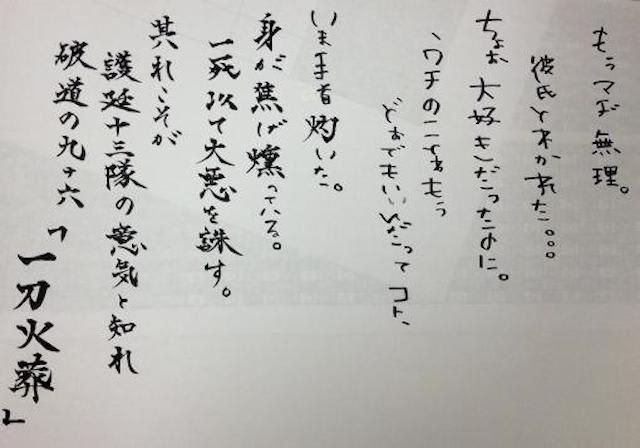 もぅマヂ無理。
彼氏とわかれた。。。
ちょぉ大好きだったのに。
ウチのことゎもぅ
どぉでもいいんだってコト、
いま手首灼いた。
身が焦げ燻っている。
一死以て大悪を誅す。
其れこそが
護廷十三隊の意気と知れ
破道の九十六「一刀火葬」